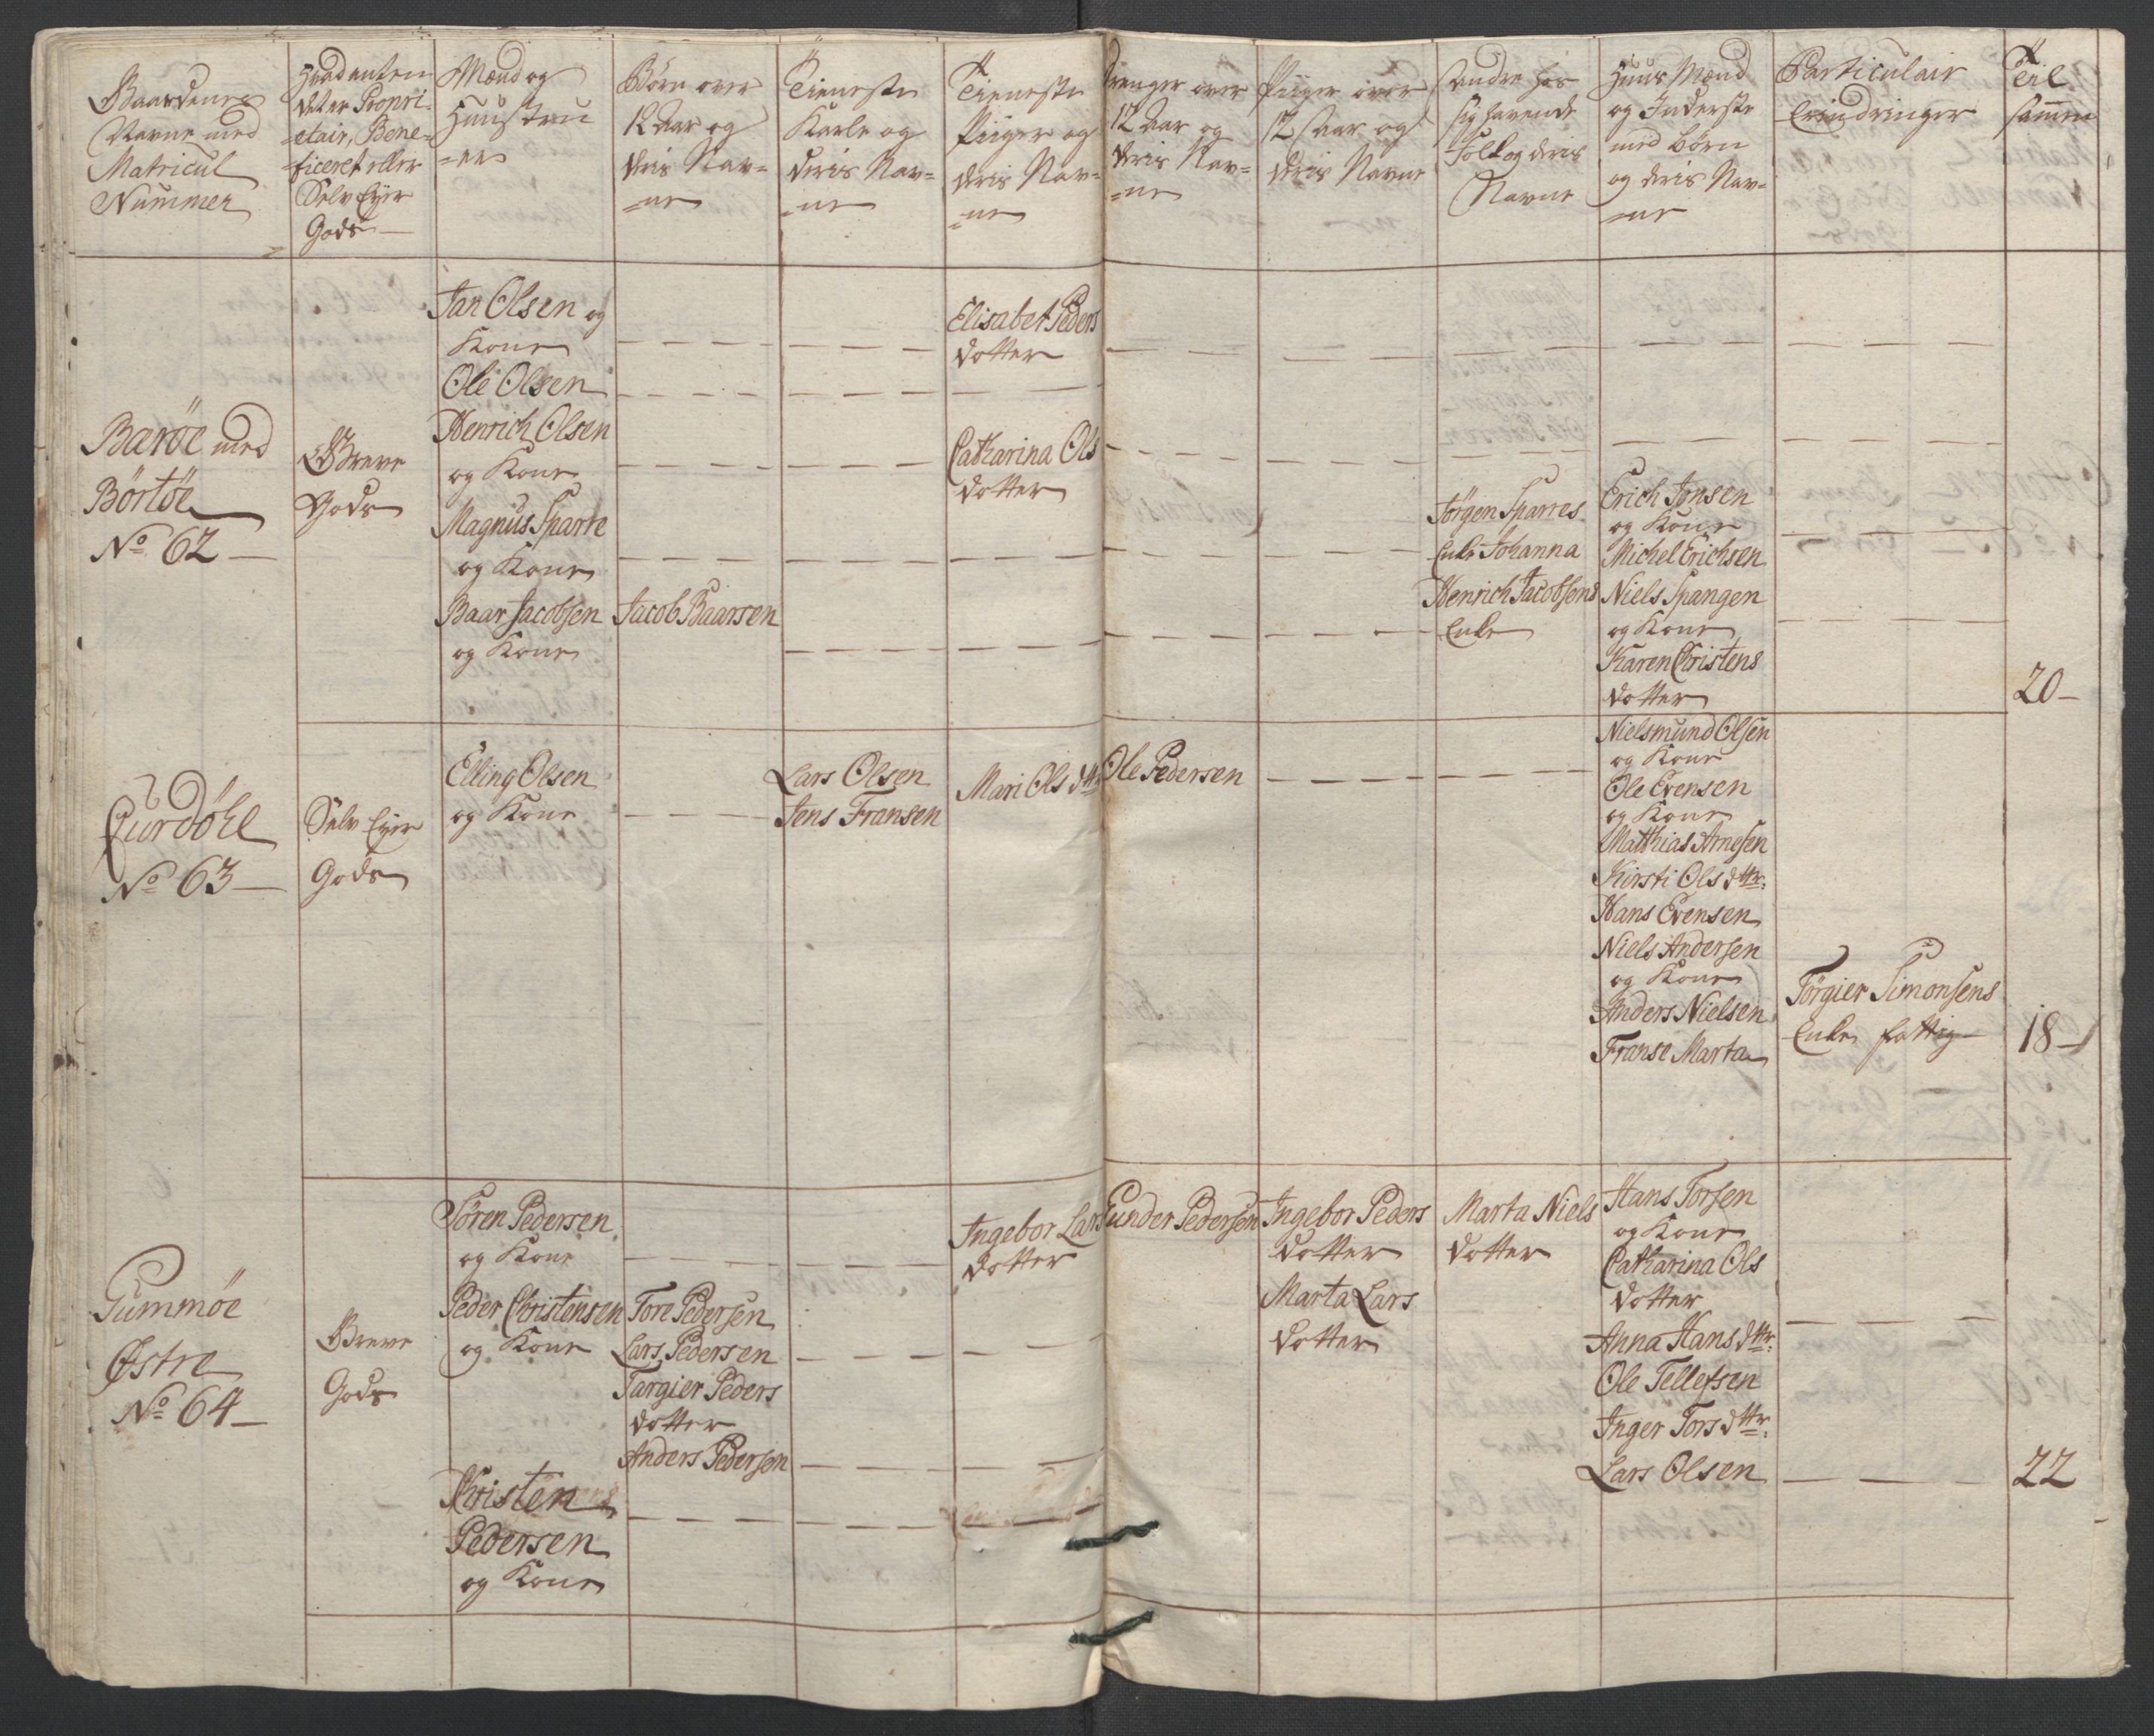 Gaardenes
Navne med
Matricul
Nummer
Hvad enten
det er Propri-
etair, Bene-
ficeret eller
Selv Eyer
Gods
Mænd og
Hüustrüe
=er
Børn over
12 Aar og
deris Nav=
=ne
Tieneste
Karle og
deris Nav=
=ne
Tieneste
Piiger og
deris Nav=
=ne
Drenger over
12 Aar og
deris Nav=
=ne
Piiger over
12 Aar og
deris Navne
Andre hos
sig havende
Folk og deris
Navne
Hüus Mænd
og Inderste
med Børn
og deris Nav=
=ne
Particulair
Erindringer
Til
sammen
Barøe med
Börtöe
No 62
Greve
Gods
Jan Olsen og
Kone
Ole Olsen
Henrich Olsen
og Kone
Magnus Sparre
og Kone
Baar Jacobsen
og Kone
Jacob Baarsen
Elisabet Peders
dotter
Catharina Ols
dotter
Jörgen Sparres
Enke Johanna
Henrich Jacobsens
Enke
Erich Jensen
og Kone
Michel Erichsen
Niels Spangen
og Kone
Karen Christens
dotter
20
No 63
Selv Eyer
Gods
Elling Olsen
og Kone
Lars Olsen
Jens Fransen
Mari Ols dttr
Ole Pedersen
Nielsmund Olsen
og Kone
Ole Evensen
og Kone
Matthias Arnesen
Kirsti Ols dttr:
Hans Evensen
Niels Andersen
og Kone
Anders Nielsen
Franse Marta
Törgier Simonsens
Enke fattig
18
Gummöe
Østre
No 64
Greve
Gods
Sören Pedersen
og Kone
Peder Christensen
og Kone
Christen
Pedersen
og Kone
Tore Pedersen
Lars Pedersen
Targier Peders
dotter
Anders Pedersen
Ingebor Lars
dotter
Gunder Pedersen
Ingebor Peders
dotter
Marta Lars
dotter
Marta Niels
dotter
Hans Torsen
og Kone
Catharina Ols
dotter
Anna Hans dttr:
Ole Tellefsen
Inger Tors dttr:
Lars Olsen
22